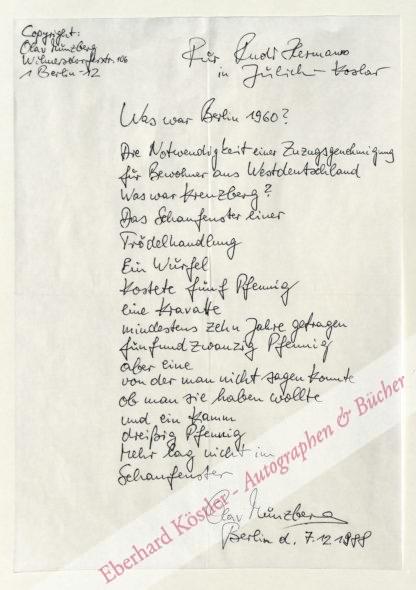 Copyright:
Olav Münzberg
Wilmersdorferstr. 106
1 Berlin-12
Für Rudi Hermanns
in Jülich-Koslar
Was war Berlin 1960?
Die Notwendigkeit einer Zuzugsgenehmigung
für Bewohner aus Westdeutschland
Was war Kreuzberg?
Das Schaufenster einer
Trödelhandlung
Ein Würfel
kostete fünf Pfennig
eine Kravatte
mindestens zehn Jahre getragen
fünfundzwanzig Pfennig
aber eine
von der man nicht sagen konnte
ob man sie haben wollte
und ein Kamm
dreißig Pfennig
Mehr lag nicht im
Schaufenster
Olav Münzberg
Berlin d. 7.12.1988
Eberhard Köstler - Autographen & Bücher